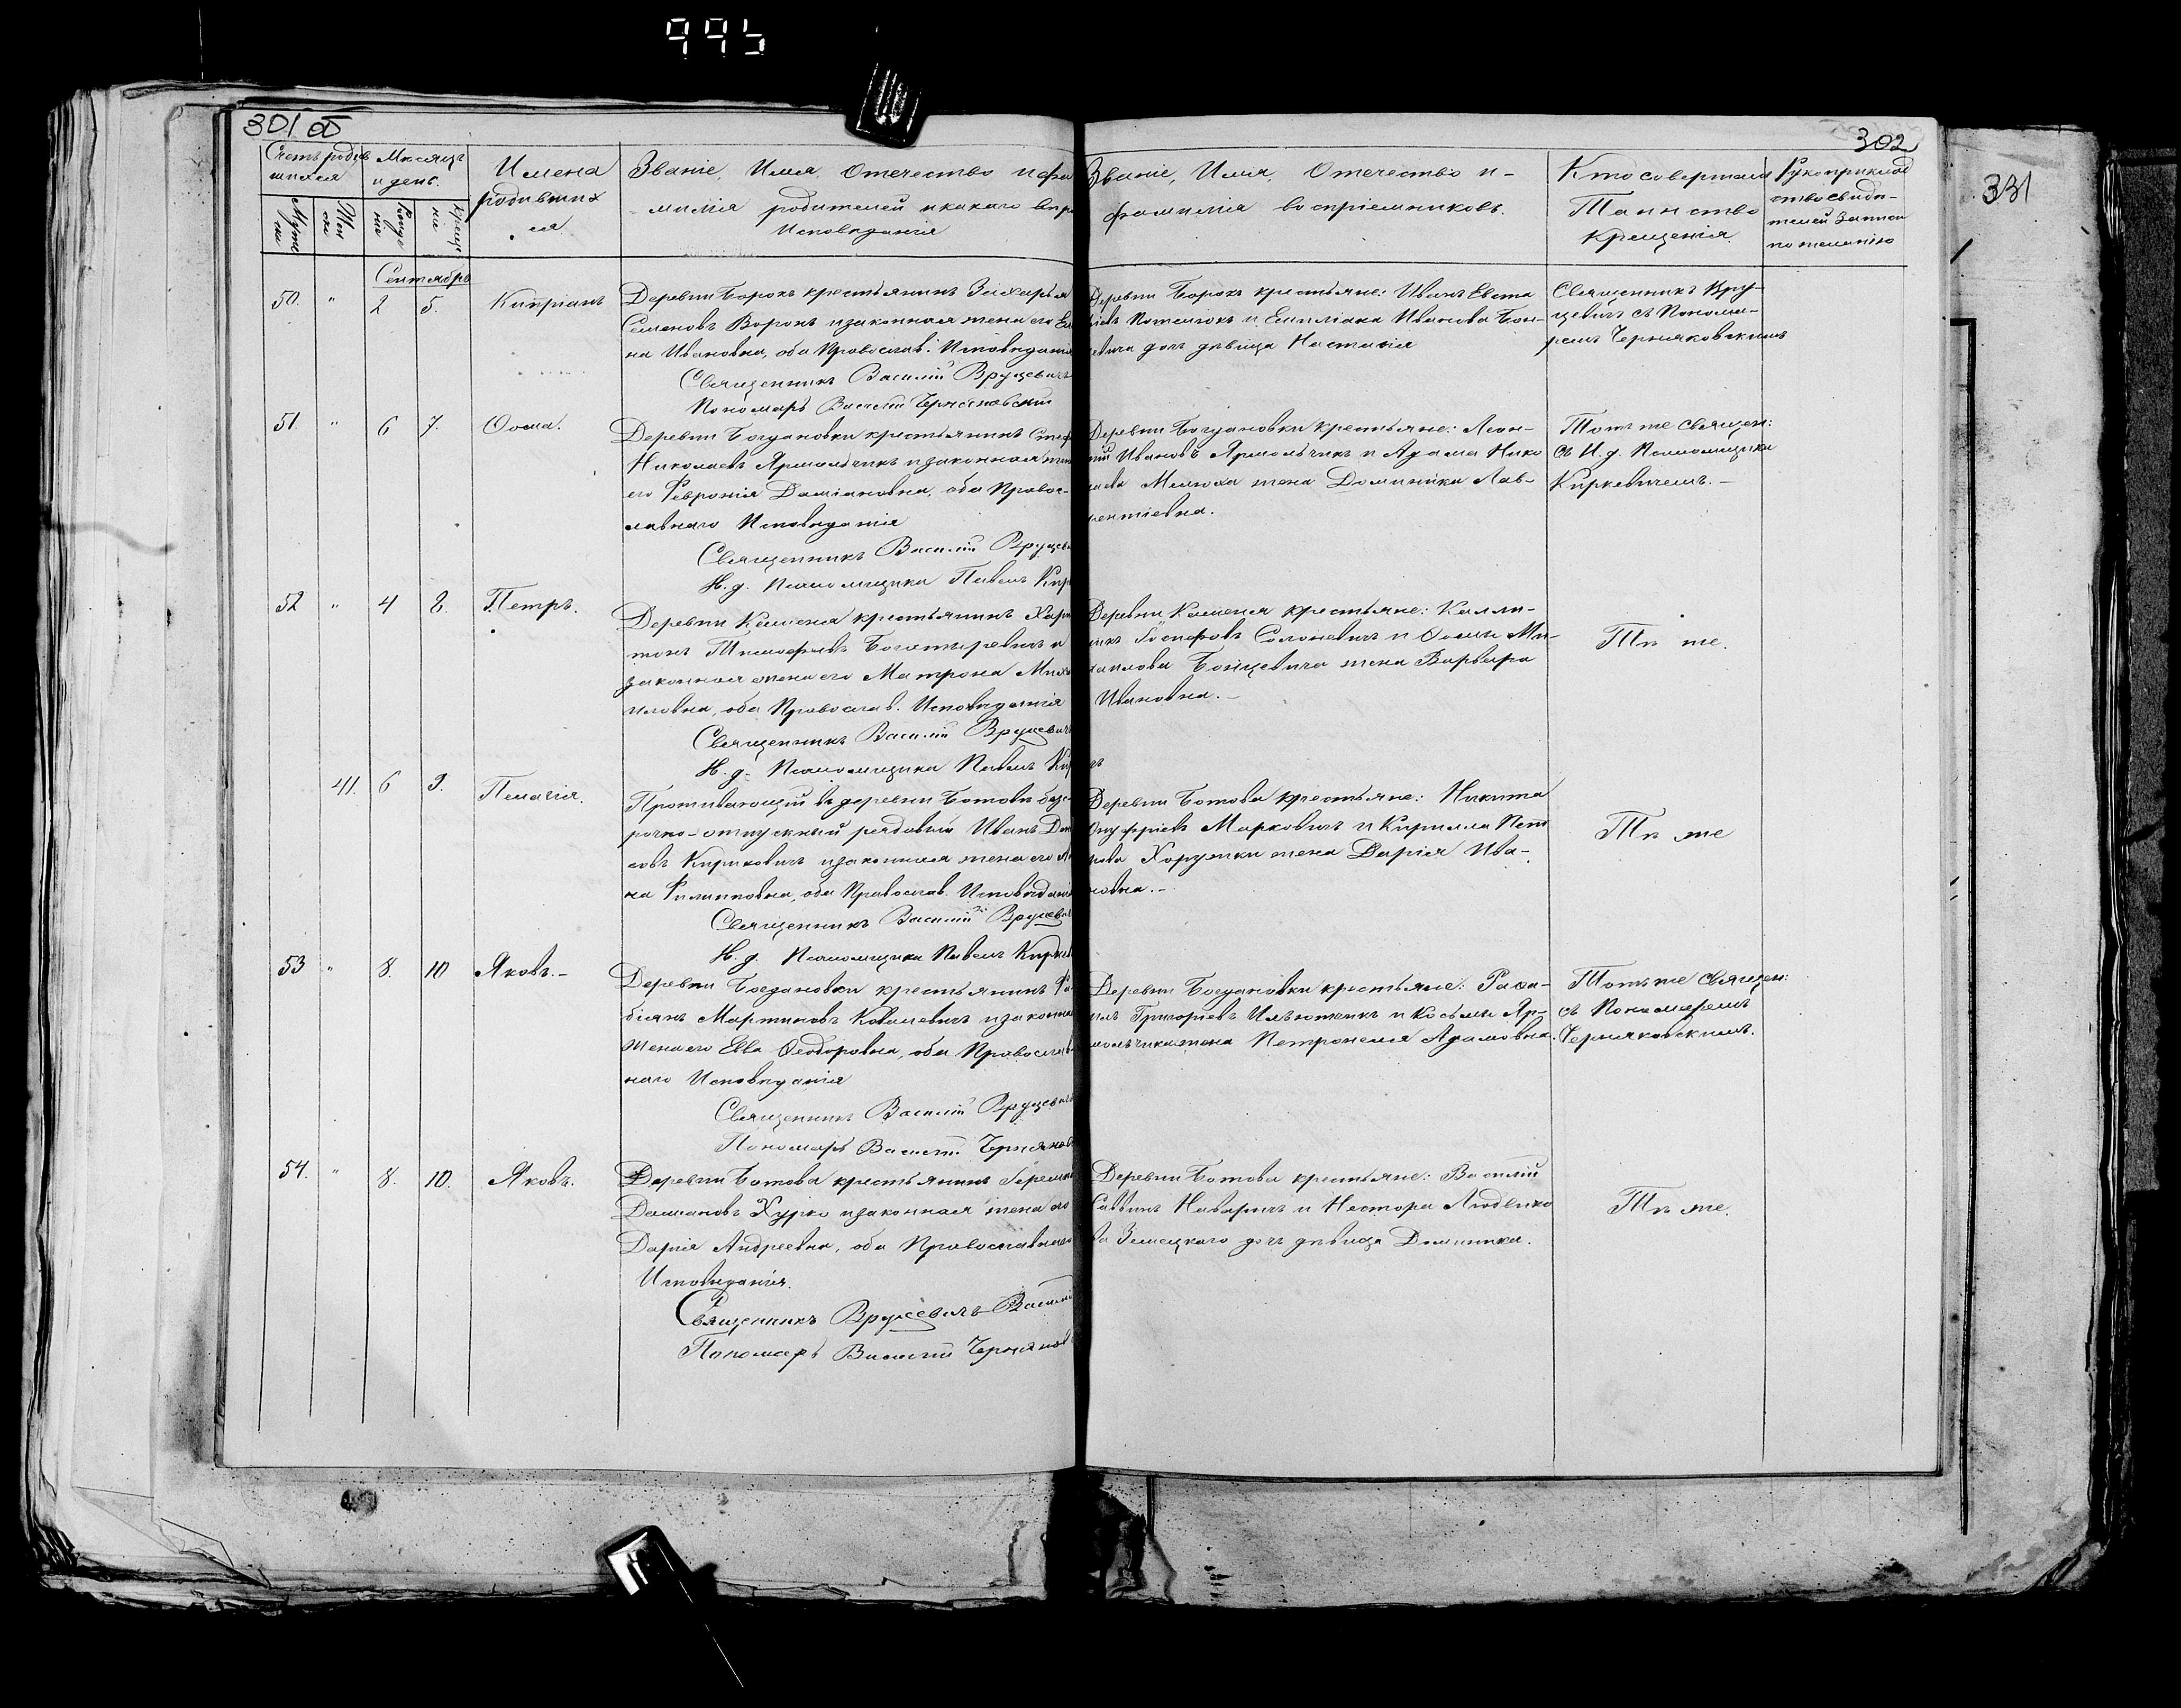 995
301 об
302
331
Счетъ родив
шихся
Мѣсяцъ
и день.
Имена
родивших
ся
Званіе, Имя, Отечество и фа
милія родителей и какого вѣро
Исповѣданія
Званіе, Имя, Отечество и
фамилія воспріемниковъ.
Кто совершалъ
Таинство
Крещенія
Рукоприклад
ство свидѣ-
телей записи
по желанію
Сентябрь
50. " 2 5. Кипріанъ
Деревни Борокъ крестьянинъ Захарья
Семеновъ Воронъ и законная жена его Еле
на Ивановна, оба Православ. Исповѣданія
Священникъ Василій Вруцевичъ
Пономарь Василій Черняковскій
Деревни Борокъ крестьяне: Иванъ Евста
и Емиліана Иванова Бон-
евича дочь дѣвица Настасія
Священникъ Вру-
цевичъ съ Понома-
ремъ Черняковскимъ
51. " 6 7. Ѳома.
Деревни Богдановки крестьянинъ
Николаевъ Ярмольчикъ и законная жен
его Февронія Даміановна, оба Правос-
лавнаго Исповѣданія
Священникъ Василій Вруцев
И. д. Псаломщика Павелъ Кир
Деревни Богдановки крестьяне: Леон-
тій Ивановъ Ярмольчикъ и Адама Нико
лаева Мелюха жена Доминика Лав-
рентіевна.
Тотъ же Священ:
съ И. д. Псаломщика
Киркевичемъ.-
52 " 4 8. Петръ.
Деревни Каменя крестьянинъ Хари
тонъ Тимофеевъ Богатыревичъ и
законная жена его Матрона Миха
иловна, оба Православ. Исповѣданія
Священникъ Василій Вруцевичъ
И. д. Псаломщика Павелъ Кир
Деревни Каменя крестьяне: Калли-
никъ Іосифовъ Солоневичъ и Ѳомы Ми-
хаилова Бонцевича жена Варвара
Ивановна.-
Тѣ же.
41. 6 9. Пелагія.
Проживающій въ деревни Ботовѣ безс-
рочно-отпускный рядовый Иванъ Дани
совъ Кириковичъ и законная жена его Ан
на Филипповна, оба Православ. Исповѣданія
Священникъ Василій Вруцевич
И. д. Псаломщика Павелъ Киркев
Деревни Ботова крестьяне: Никита
Онуфріевъ Марковичъ и Кирилла Пет
рова Хоружки жена Дарія Ива-
новна.-
Тѣ же
53 " 8. 10 Яковъ.-
Деревни Богдановки крестьянинъ Фа
біянъ Мартиновъ Ковалевичъ и законная
жена его Евва Ѳеодоровна, оба Православ-
наго Исповѣданія
Священникъ Василій Вруцевичъ
Пономарь Василій Черняков
Деревни Богдановки крестьяне: Рафа-
илъ Григорьевъ Ильютчикъ и Косьмы Яр-
мольчика жена Петронеля Адамовна.
Тотъ же Священ:
съ Пономаремъ
Черняковскимъ.
54. " 8. 10. Яковъ.
Деревни Ботова крестьянинъ Іеремія
Даміановъ Хурко и законная жена его
Дарія Андреевна, оба Православнаго
Исповѣданія.
Священникъ Вруцевичъ Василій
Пономарь Василій Черняков
Деревни Ботова крестьяне: Василій
Саввинъ Наваричъ и Нестора
ва Земецкаго дочь дѣвица Доминика.
Тѣ же.